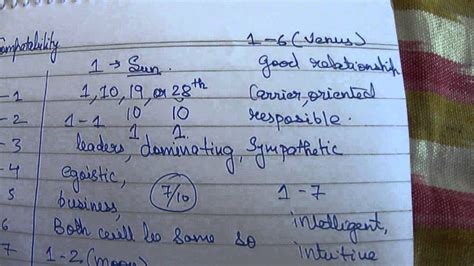 Compatability
1-6 (Venus)
1 → Sun.
good relationship
-1
1, 10, 19, or 28th
Carrier, oriented
-2
1-1 10 10
resposible.
1 1.
-3
leaders, dominating, Sympathetic
-4
egoistic,
7/10
1-7
5
business,
intelligent,
6
Both will be same so
intuitive
7
1-2 (moon)